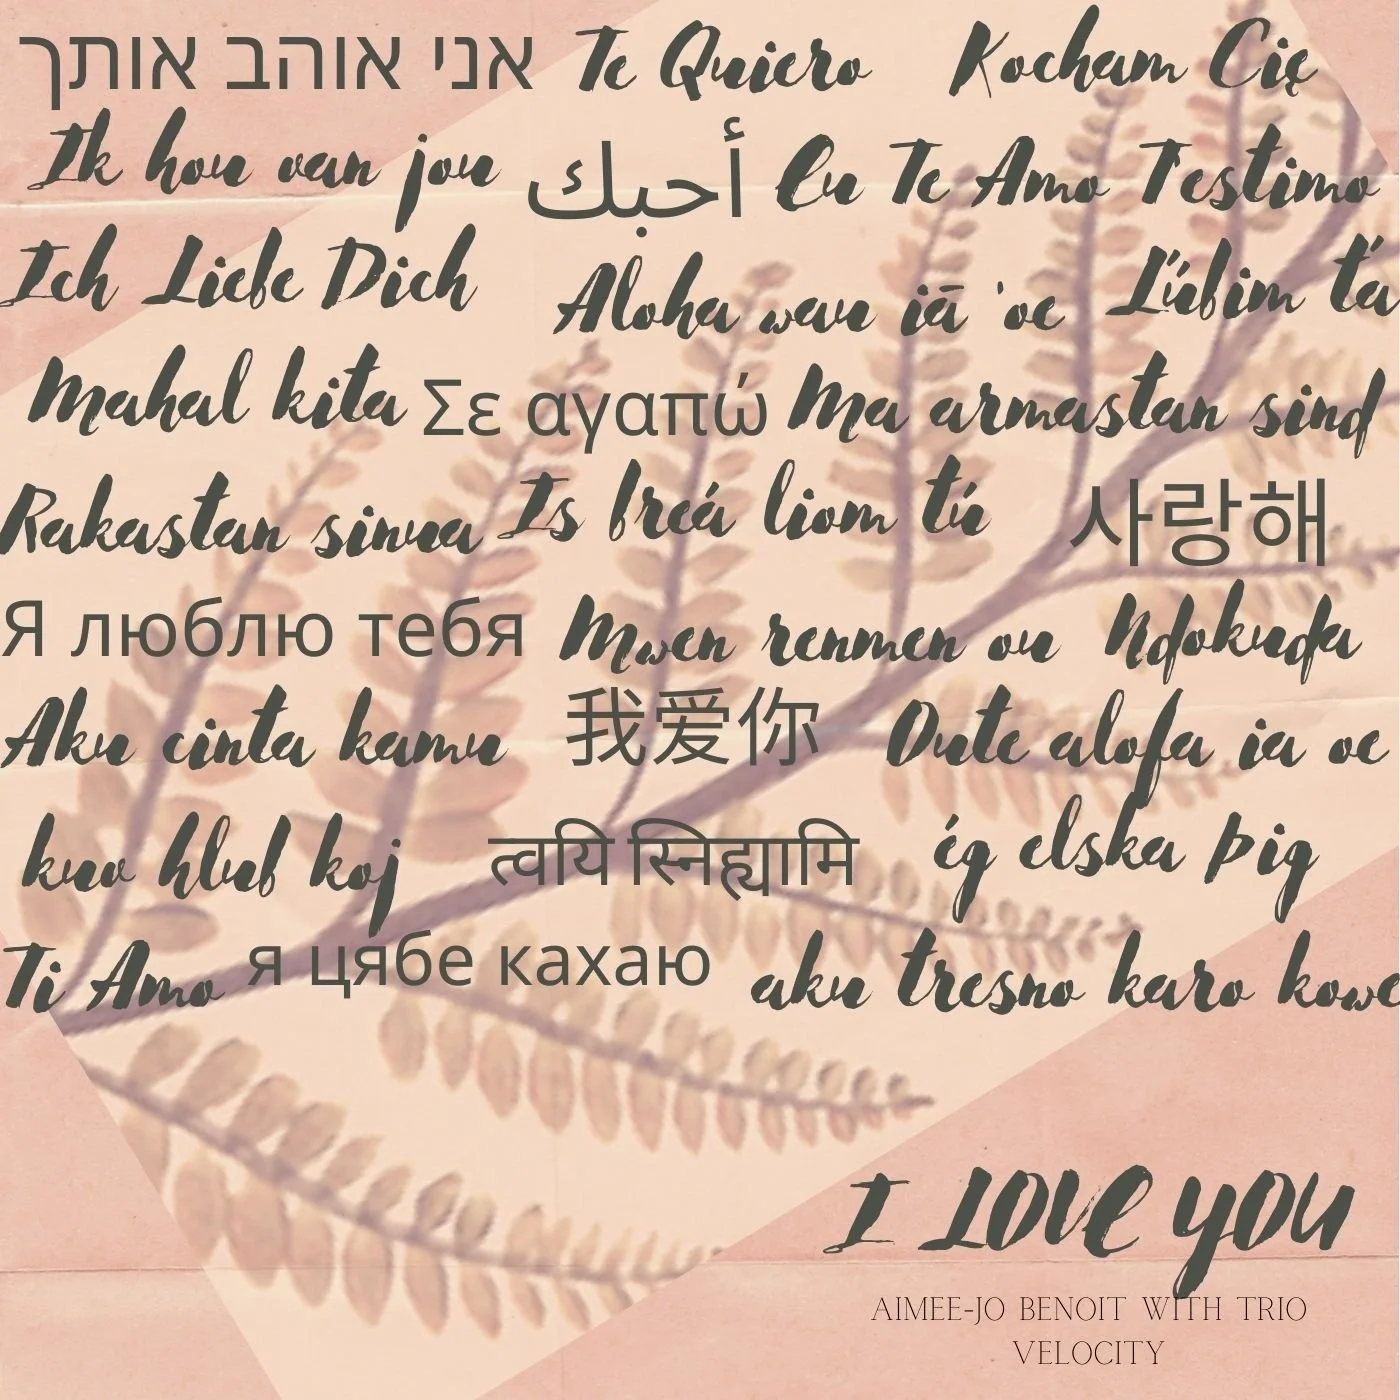 אני אוהב אותך Te Quiero Kocham Cię
Ik hou van jou أحبك Eu Te Amo T'estimo
Ich Liebe Dich Aloha wau iā 'oe L'úbim t'a
Mahal kita Σε αγαπώ Ma armastan sind
Rakastan sinua Is breá liom tú 사랑해
Я люблю тебя Mwen renmen ou Ndokuda
Aku cinta kamu 我爱你 Oute alofa ia oe
kuv hlub koj त्वयि स्निह्यामि ég elska þig
Ti Amo я цябе кахаю aku tresno karo kowe
I LOVE YOU
AIMEE-JO BENOIT WITH TRIO
VELOCITY